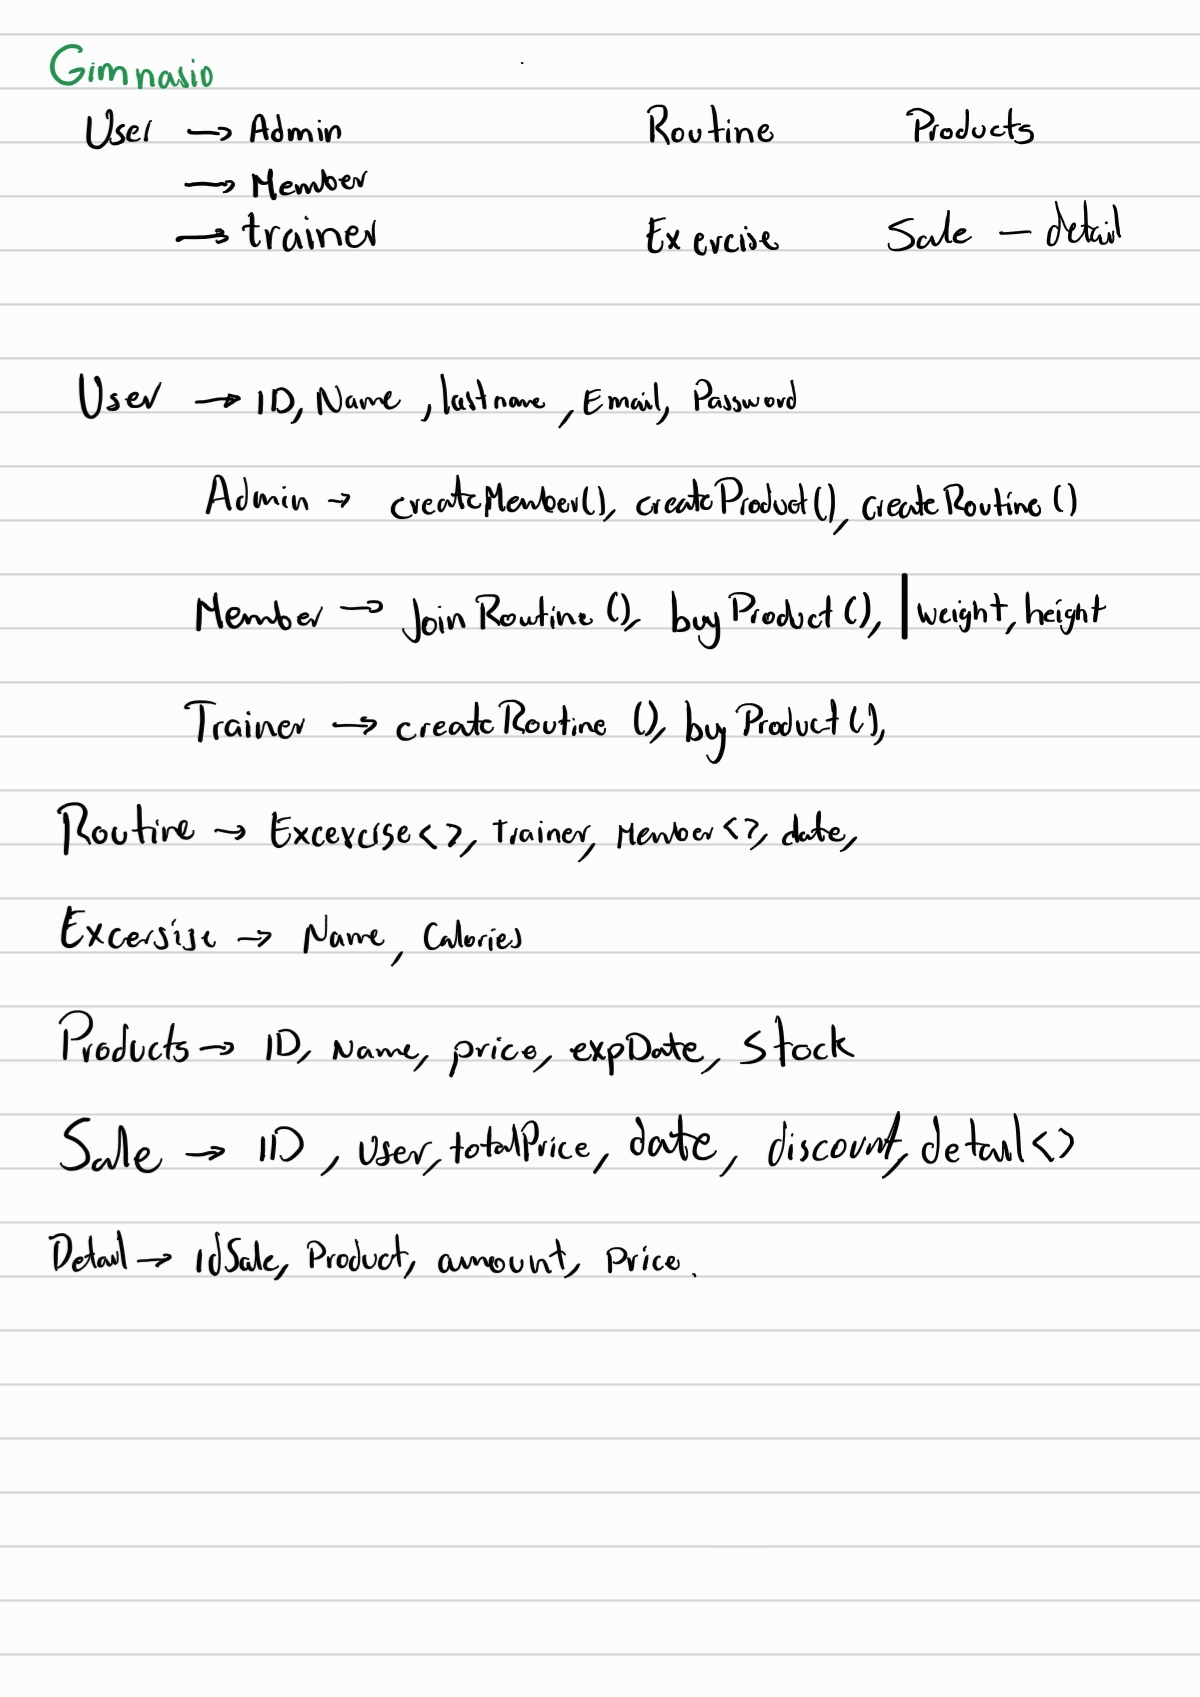 Gimnasio
User → Admin Routine Products
→ Member
→ trainer Exercise Sale — detail
User → ID, Name, lastname, Email, Password
Admin → createMember(), createProduct(), createRoutine()
Member → JoinRoutine(), buyProduct(), | weight, height
Trainer → createRoutine(), buyProduct(),
Routine → Excercise<>, Trainer, Member<>, date,
Excersise → Name, Calories
Products → ID, Name, price, expDate, Stock
Sale → ID, User, totalPrice, date, discount, detail<>
Detail → idSale, Product, amount, Price.